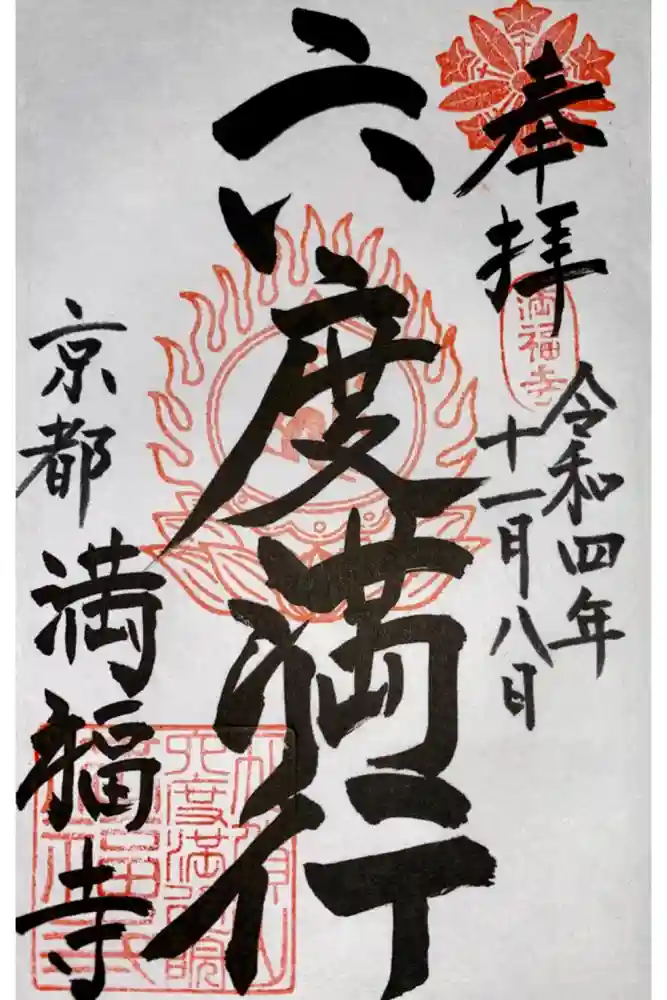 奉拝
満福寺
令和四年
十一月八日
六度満行
京都
満福寺